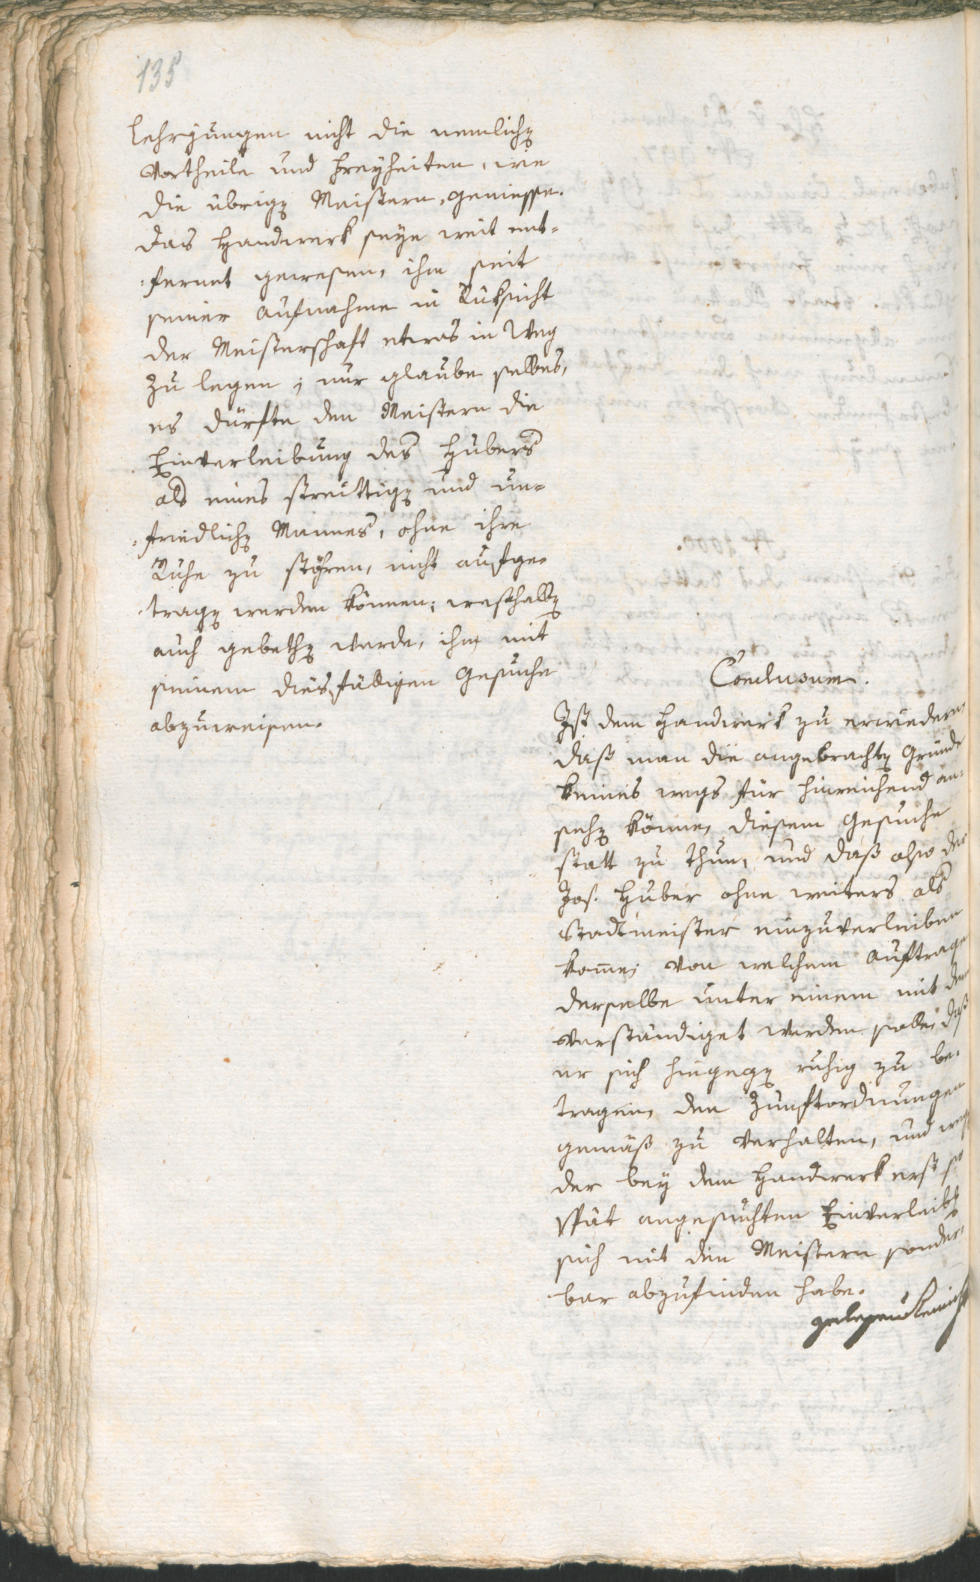 135
Lehrjungen nicht die nemlichen
Vortheile und Freyheiten, wie
die übrigen Meistern, geniesse.
Das Handwerk seye weit ent-
fernet gewesen, ihm seit
seiner Aufnahme in Rüksicht
der Meisterschaft etwas in Weg
zu legen; nur glaube selbes,
es dürfte den Meistern die
Einverleibung des Hubers
als eines streittigen und un-
friedlichen Mannes, ohne ihre
Ruhe zu stöhren, nicht aufge-
tragen werden können; weshalben
auch gebethen werde, ihn mit
seinem diesfälligen Gesuche
abzuweisen.
Conclusum.
Ist dem Handwerk zu erwiedern,
daß man die angebrachten Gründe
keines wegs für hinreichend an-
sehen könne, diesem Gesuche
statt zu thun, und daß also der
Jos. Huber ohne weiters als
Stadtmeister einzuverleiben
komme; von welchem Auftrage
derselbe unter einem mit dem
verständiget werden solle, daß
er sich hingegen ruhig zu be-
tragen, den Zunftordnungen
gemäß zu verhalten, und wegen
der bey dem Handwerk erst so
spät angesuchten Einverleibung
sich mit den Meistern sonder-
bar abzufinden habe.